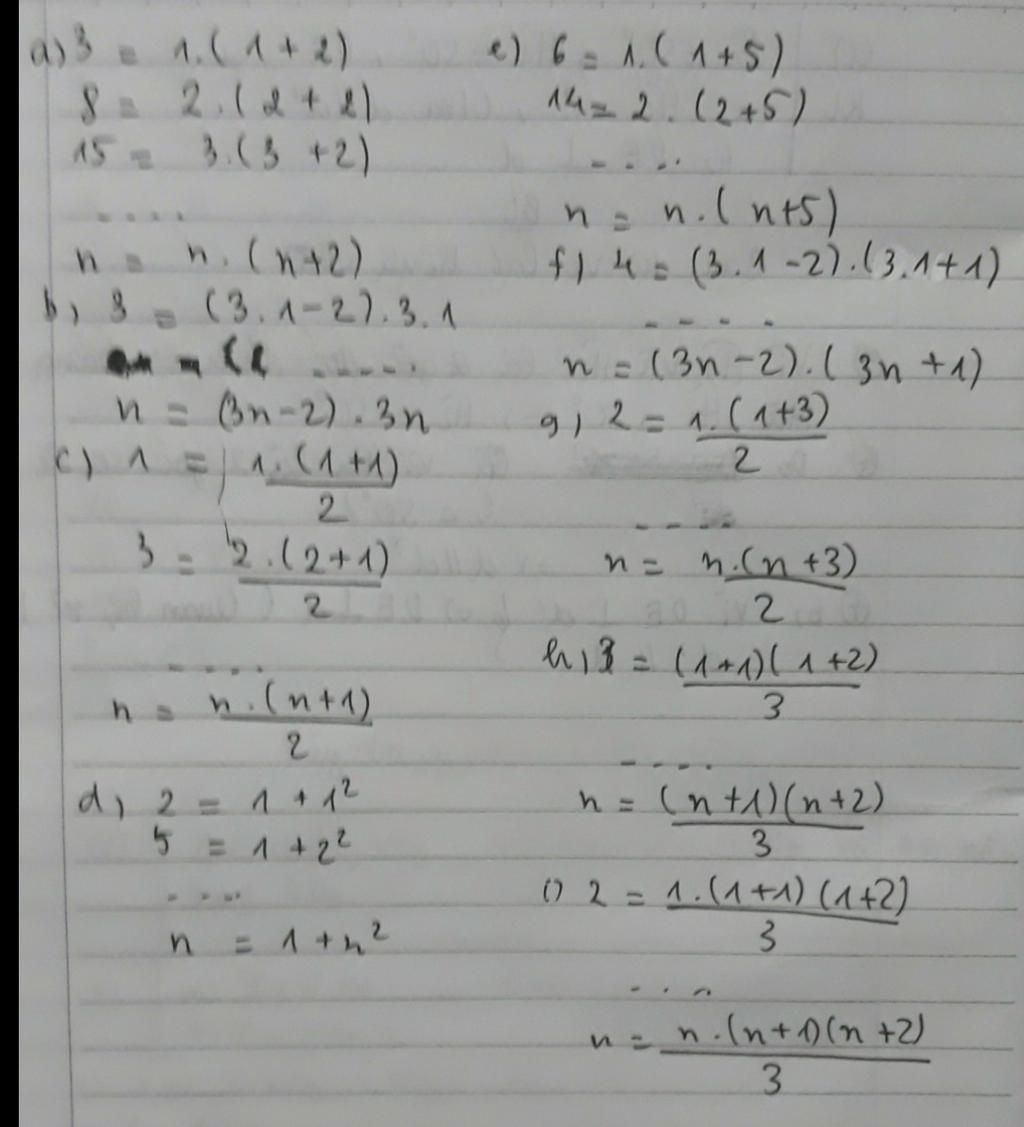 a) 3 = 1.(1+2)
8 = 2.(2+2)
15 = 3.(3+2)
....
n = n.(n+2)
b) 3 = (3.1-2).3.1
.....
n = (3n-2).3n
c) 1 = 1.(1+1)/2
3 = 2.(2+1)/2
....
n = n.(n+1)/2
d) 2 = 1+1²
5 = 1+2²
....
n = 1+n²
e) 6 = 1.(1+5)
14 = 2.(2+5)
....
n = n.(n+5)
f) 4 = (3.1-2).(3.1+1)
....
n = (3n-2).(3n+1)
g) 2 = 1.(1+3)/2
....
n = n.(n+3)/2
h) = (1+1)(1+2)/3
....
n = (n+1)(n+2)/3
i) 2 = 1.(1+1)(1+2)/3
...
n = n.(n+1)(n+2)/3